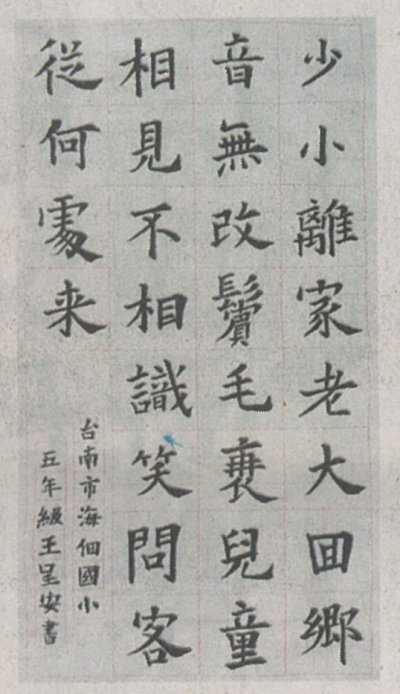 少小離家老大回鄉
音無改鬢毛衰兒童
相見不相識笑問客
從何處来
台南市海佃國小
五年級王呈安書